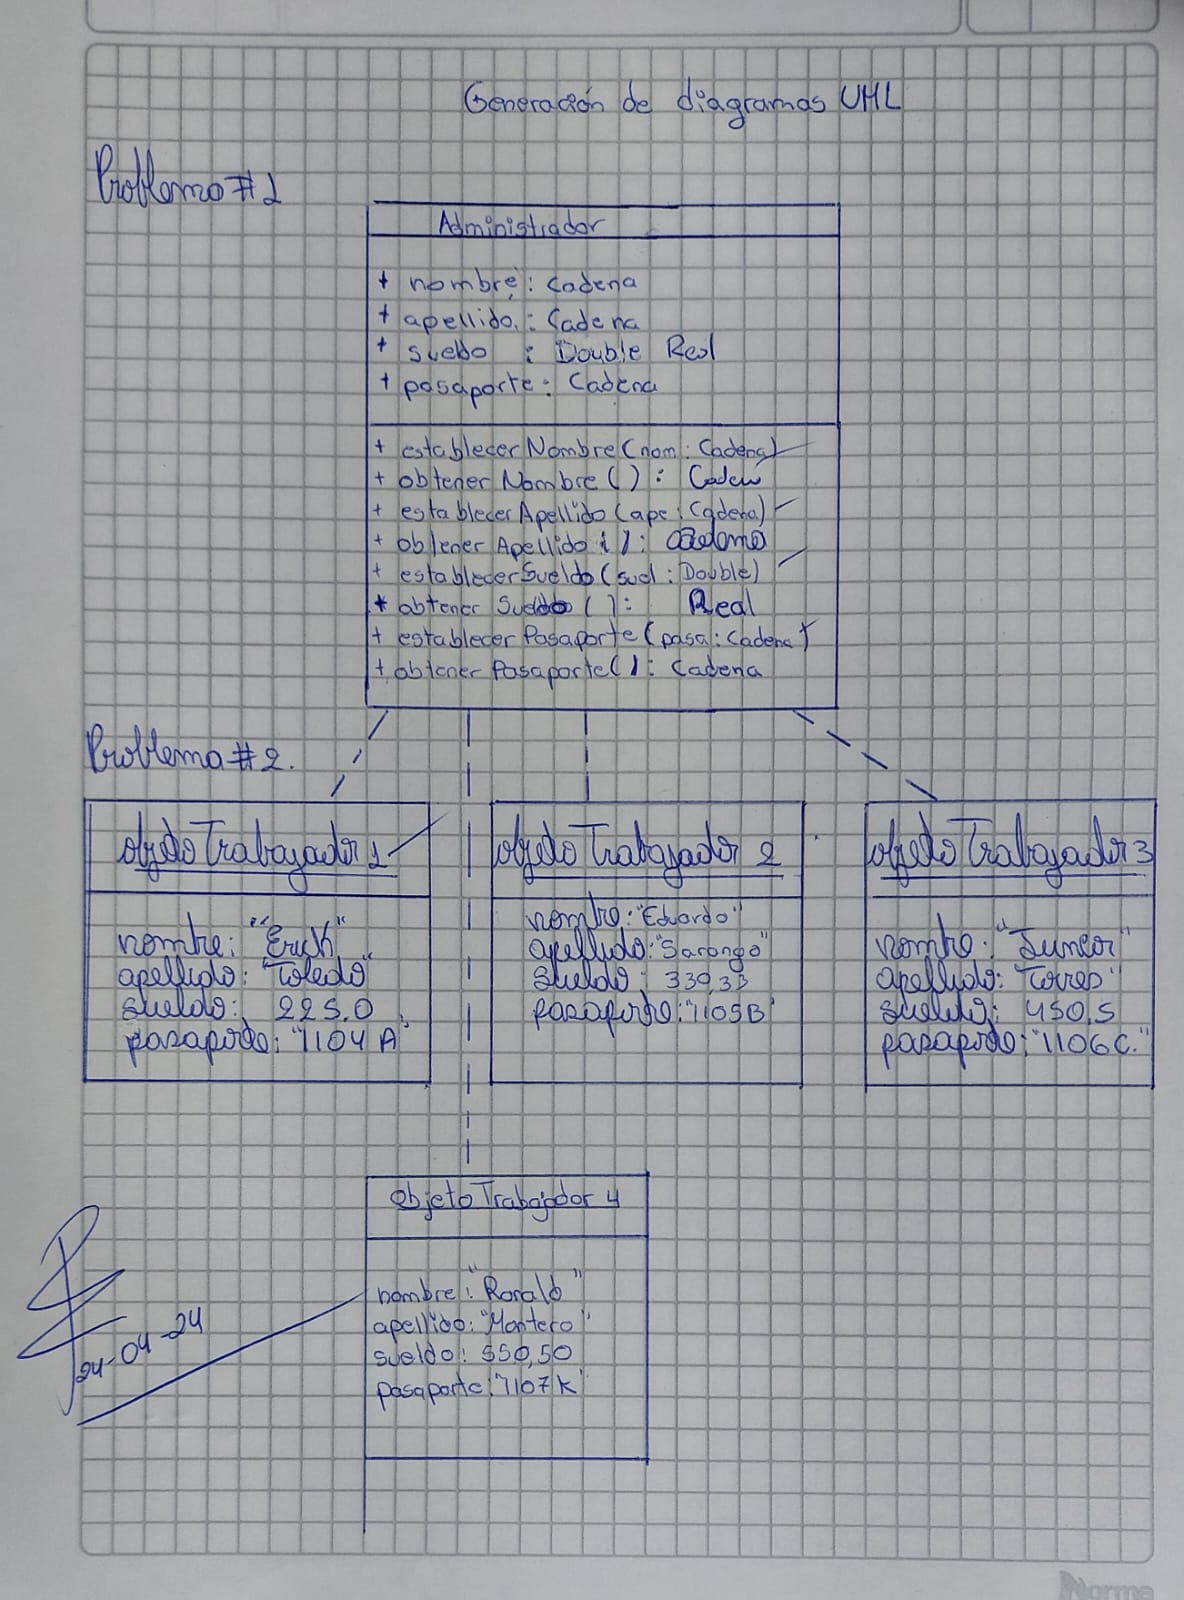 Generación de diagramas UML
Problema #1
Administrador
+ nombre : Cadena
+ apellido : Cadena
+ sueldo : Double Real
+ pasaporte : Cadena
+ establecer Nombre (nom : Cadena)
+ obtener Nombre ( ) : Cadena
+ establecer Apellido (ape : Cadena)
+ obtener Apellido ( ) : Cadena
+ establecer Sueldo (suel : Double)
+ obtener Sueldo ( ) : Real
+ establecer Pasaporte (pasa : Cadena)
+ obtener Pasaporte ( ) : Cadena
Problema #2.
objeto Trabajador 1
nombre: "Erick"
apellido: "Toledo"
sueldo: 225,0
pasaporte: "1104 A"
objeto Trabajador 2
nombre: "Eduardo"
apellido: "Sarango"
sueldo: 339,33
pasaporte: "1105B"
objeto Trabajador 3
nombre: "Junior"
apellido: "Torres"
sueldo: 450,5
pasaporte: "1106C."
Objeto Trabajador 4
nombre: "Ronald"
apellido: "Montero"
sueldo: 550,50
pasaporte: "1107K"
24-04-24
Norma